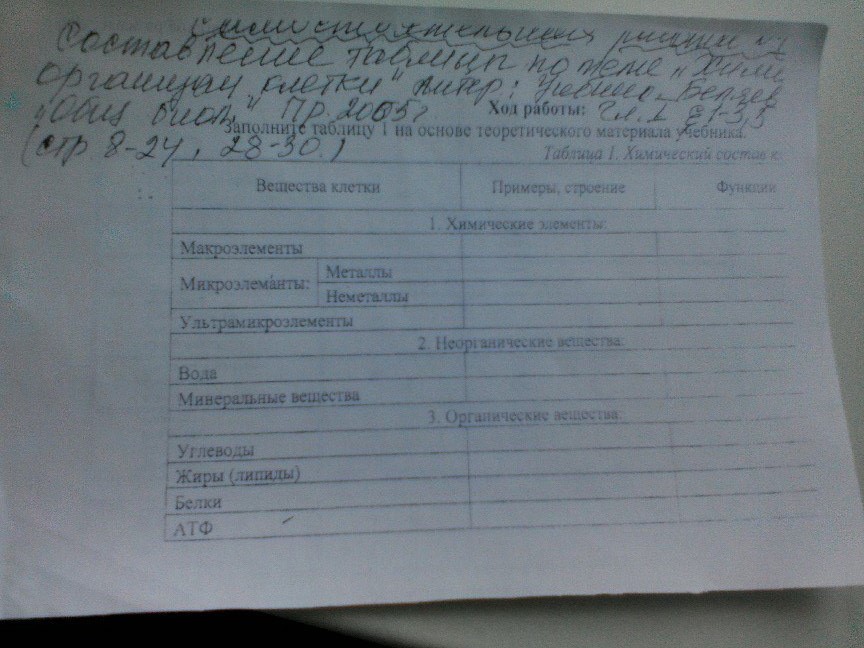 самостоятельная
Составление таблицы по теме „Хими
организация клетки" литер: Беляев
„Общ биол" Пр. 2005г Ход работы: Гл. 1 §1-3, 5
Заполните таблицу 1 на основе теоретического материала учебника.
(стр 8-24, 28-30.) Таблица 1. Химический состав к
Вещества клетки Примеры, строение Функции
1. Химические элементы:
Макроэлементы
Микроэлеманты: Металлы
Неметаллы
Ультрамикроэлементы
2. Неорганические вещества:
Вода
Минеральные вещества
3. Органические вещества:
Углеводы
Жиры (липиды)
Белки
АТФ